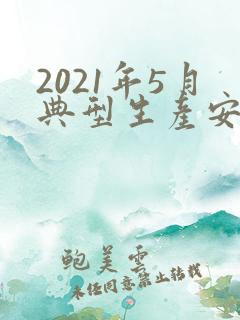 2021年5月
典型生产安
鲍美云
未经同意禁止转载